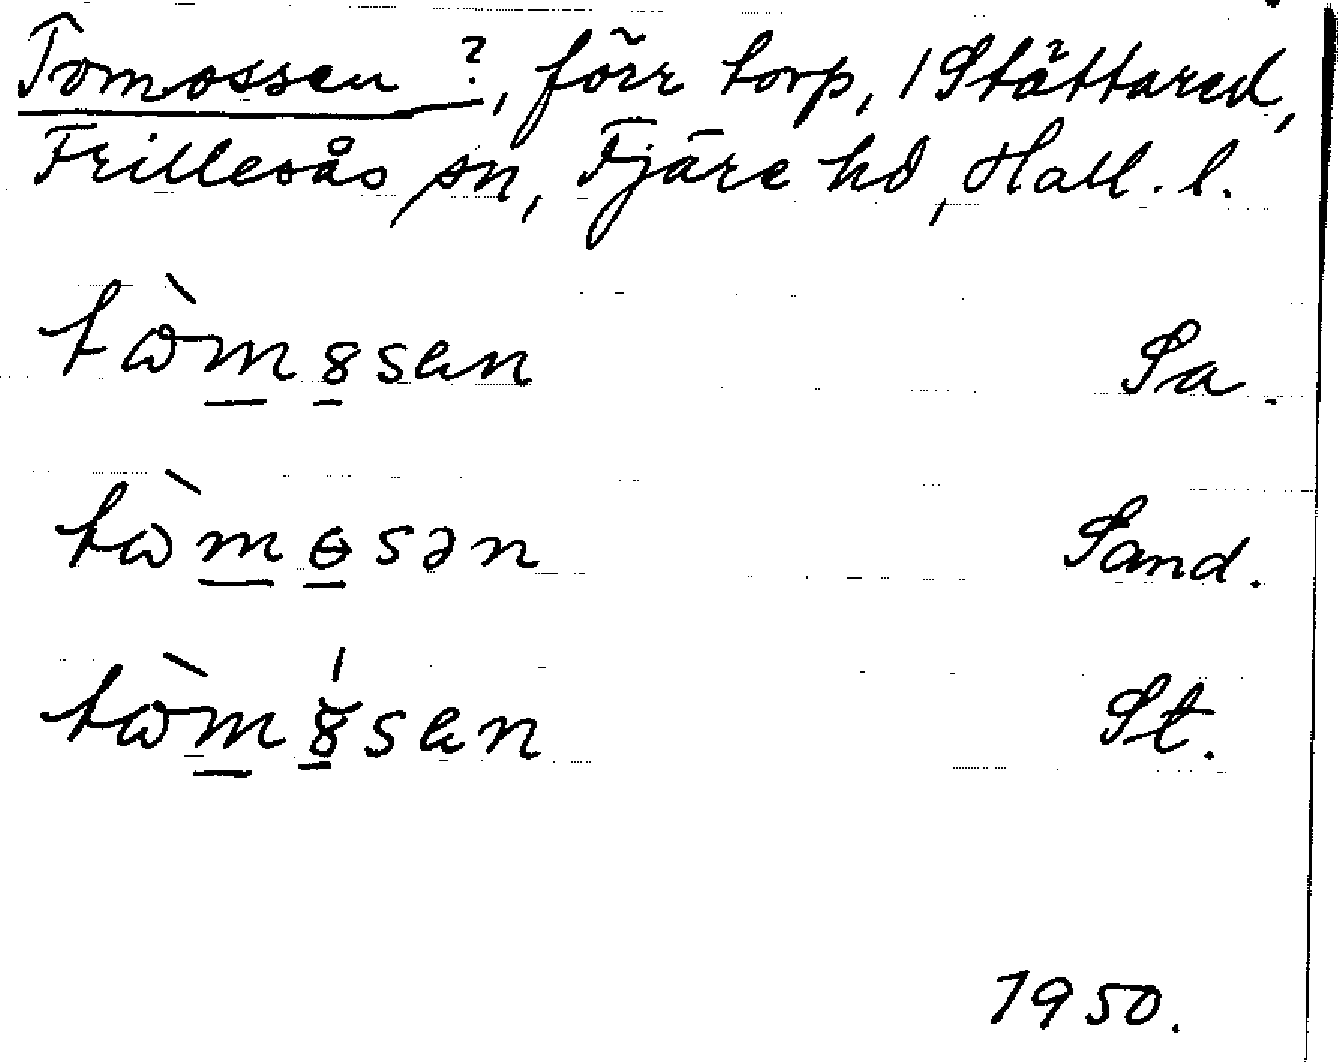 Tomossen ?, förr torp, 1 Stättared,
Frillesås sn, Fjäre hd, Hall. l.
tɷ̀m8sen Sa.
tɷ̀mɵsən Sand.
tɷ̀m8́sen St.
1950.